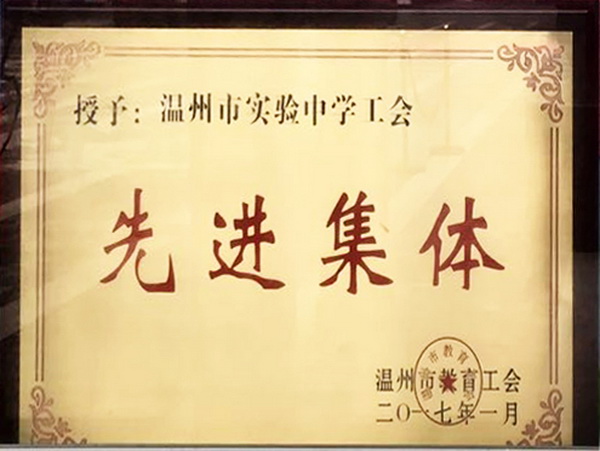 授予：温州市实验中学工会
先进集体
温州市教育工会
二〇一七年一月